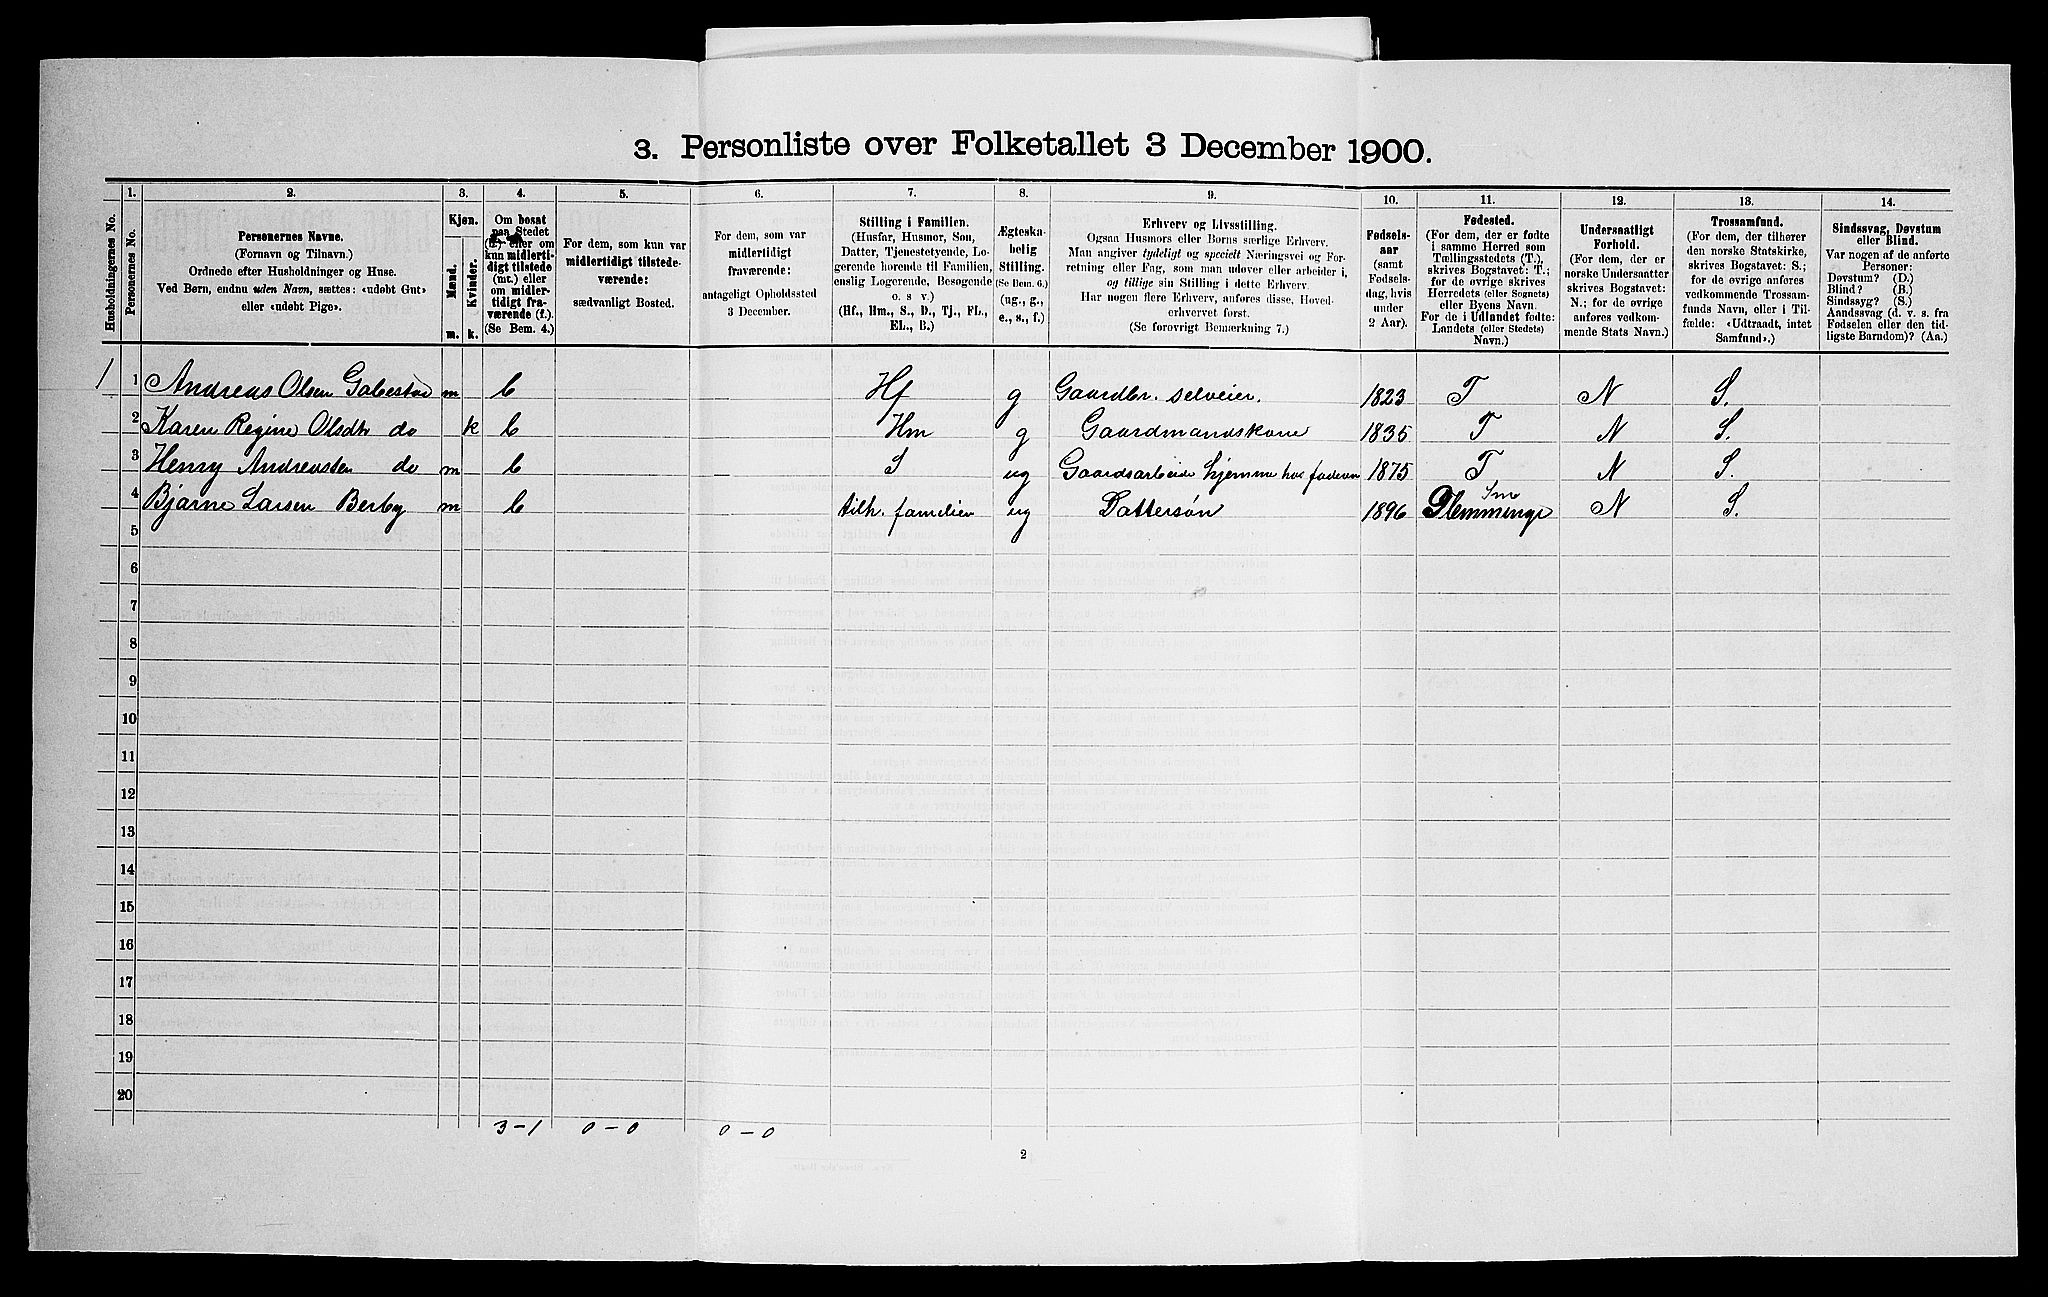 3. Personliste over Folketallet 3 December 1900.
1. 2. 3. 4. 5. 6. 7. 8. 9. 10. 11. 12. 13. 14.
Husholdningernes No.
Personernes No.
Personernes Navne.
(Fornavn og Tilnavn.)
Ordnede efter Husholdninger og Huse.
Ved Børn, endnu uden Navn, sættes: «udøbt Gut»
eller «udøbt Pige».
Kjøn.
Mænd.
Kvinder.
m. k.
Om bosat
paa Stedet
(b.) eller om
kun midlerti-
digt tilstede
(mt.) eller
om midler-
tidigt fra-
værende (f.).
(Se Bem. 4.)
For dem, som kun var
midlertidigt tilstede-
værende:
sædvanligt Bosted.
For dem, som var
midlertidigt
fraværende:
antageligt Opholdssted
3 December.
Stilling i Familien.
(Husfar, Husmor, Søn,
Datter, Tjenestetyende, Lo-
gerende hørende til Familien,
enslig Logerende, Besøgende
o. s v.)
(Hf., Hm., S., D., Tj., FL.,
EL., B.)
Ægteska-
belig
Stilling.
(Se Bem. 6.)
(ug., g.,
e., s., f.)
Erhverv og Livsstilling.
Ogsaa Husmors eller Børns særlige Erhverv.
Man angiver tydeligt og specielt Næringsvei og For-
retning eller Fag, som man udøver eller arbeider i,
og tillige sin Stilling i dette Erhverv.
Har nogen flere Erhverv, anføres disse, Hoved-
erhvervet først.
(Se forøvrigt Bemerkning 7.)
Fødsels-
aar
(samt
Fødsels-
dag, hvis
under
2 Aar).
Fødested.
(For dem, der er fødte
i samme Herred som
Tællingsstedets (T.),
skrives Bogstavet: T.;
for de øvrige skrives
Herredets (eller Sognets)
eller Byens Navn.
For de i Udlandet fødte:
Landets (eller Stedets)
Navn.)
Undersaatligt
Forhold.
(For dem, der er
norske Undersaatter
skrives Bogstavet:
N.; for de øvrige
anføres vedkom-
mende Stats Navn.)
Trossamfund.
(For dem, der tilhører
den norske Statskirke,
skrives Bogstavet: S.;
for de øvrige anføres
vedkommende Trossam-
funds Navn, eller i Til-
fælde: «Udtraadt, intet
Samfund».)
Sindssvag, Døvstum
eller Blind.
Var nogen af de anførte
Personer:
Døvstum? (D.)
Blind? (B.)
Sindssyg? (S.)
Aandssvag (d. v. s. fra
Fødselen eller den tid-
ligste Barndom)? (Aa.)
1 1 Andreas Olsen Gabestad m b Hf g Gaardbr. selveier. 1823 T N S.
2 Karen Regine Olsdtr do k b Hm g Gaardmandskone 1835 T N S.
3 Henry Andreassen do m b S ug Gaardsarbeide hjemme hos faderen 1875 T N S.
4 Bjarne Larsen Berby m b tilh. familien ug Dattersøn 1896 Sm Glemminge N S.
5
6
7
8
9
10
11
12
13
14
15
16
17
18
19
20
3-1 0-0 0-0
2